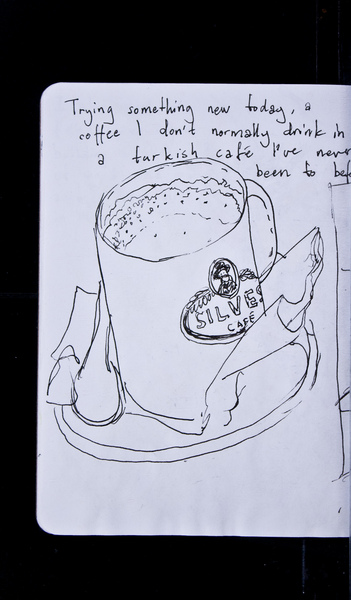 Trying something new today, a
coffee I don't normally drink in
a turkish café I've never
been to bef
SILVE
CAFÉ